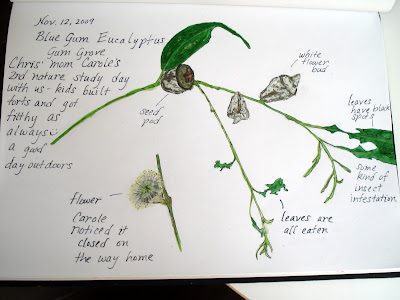 Nov. 12, 2009
Blue Gum Eucalyptus
Gum Grove
Chris' mom Carole's
2nd nature study day
with us - kids built
forts and got
filthy as
always
a good
day outdoors
seed
pod
white
flower
bud
leaves
have black
spots
some
kind of
insect
infestation
flower
Carole
noticed it
closed on
the way home
leaves are
all eaten